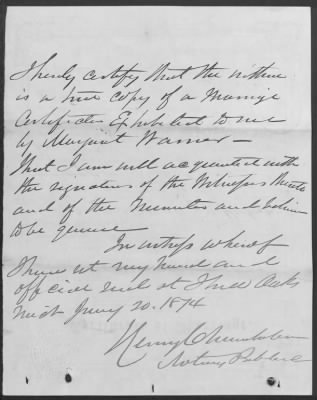 I hereby certify that the within
is a true copy of a Marriage
Certificate Exhibited to me
by Margaret Warner —
that I am well acquainted with
the signatures of the Witnesses
and of the and
to be genuine
In witness whereof
I have set my hand and
official seal at Three Oaks
Mich Jany 20. 1874
Henry Chamberlain
Notary Public